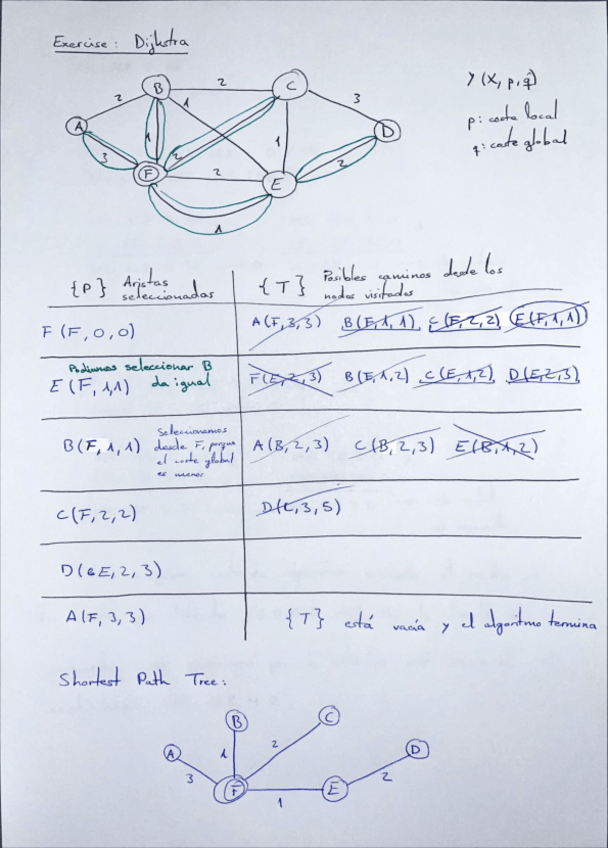 Exercise: Dijkstra
Y (X, p, q)
p: coste local
q: coste global
A
B
C
D
E
F
2
2
3
3
1
2
1
1
2
2
1
{P} Aristas seleccionadas
{T} Posibles caminos desde los nodos visitados
F (F, 0, 0)
A(F, 3, 3) B(F, 1, 1) C(F, 2, 2) E(F, 1, 1)
Podiamos seleccionar B
E (F, 1, 1) da igual
F(E, 2, 3) B(E, 1, 2) C(E, 1, 2) D(E, 2, 3)
B(F, 1, 1)
Seleccionamos
desde F, porque
el coste global
es menor
A(B, 2, 3) C(B, 2, 3) E(B, 1, 2)
C(F, 2, 2)
D(C, 3, 5)
D(E, 2, 3)
A(F, 3, 3)
{T} está vacía y el algoritmo termina
Shortest Path Tree:
B
C
A
D
F
E
3
1
2
1
2